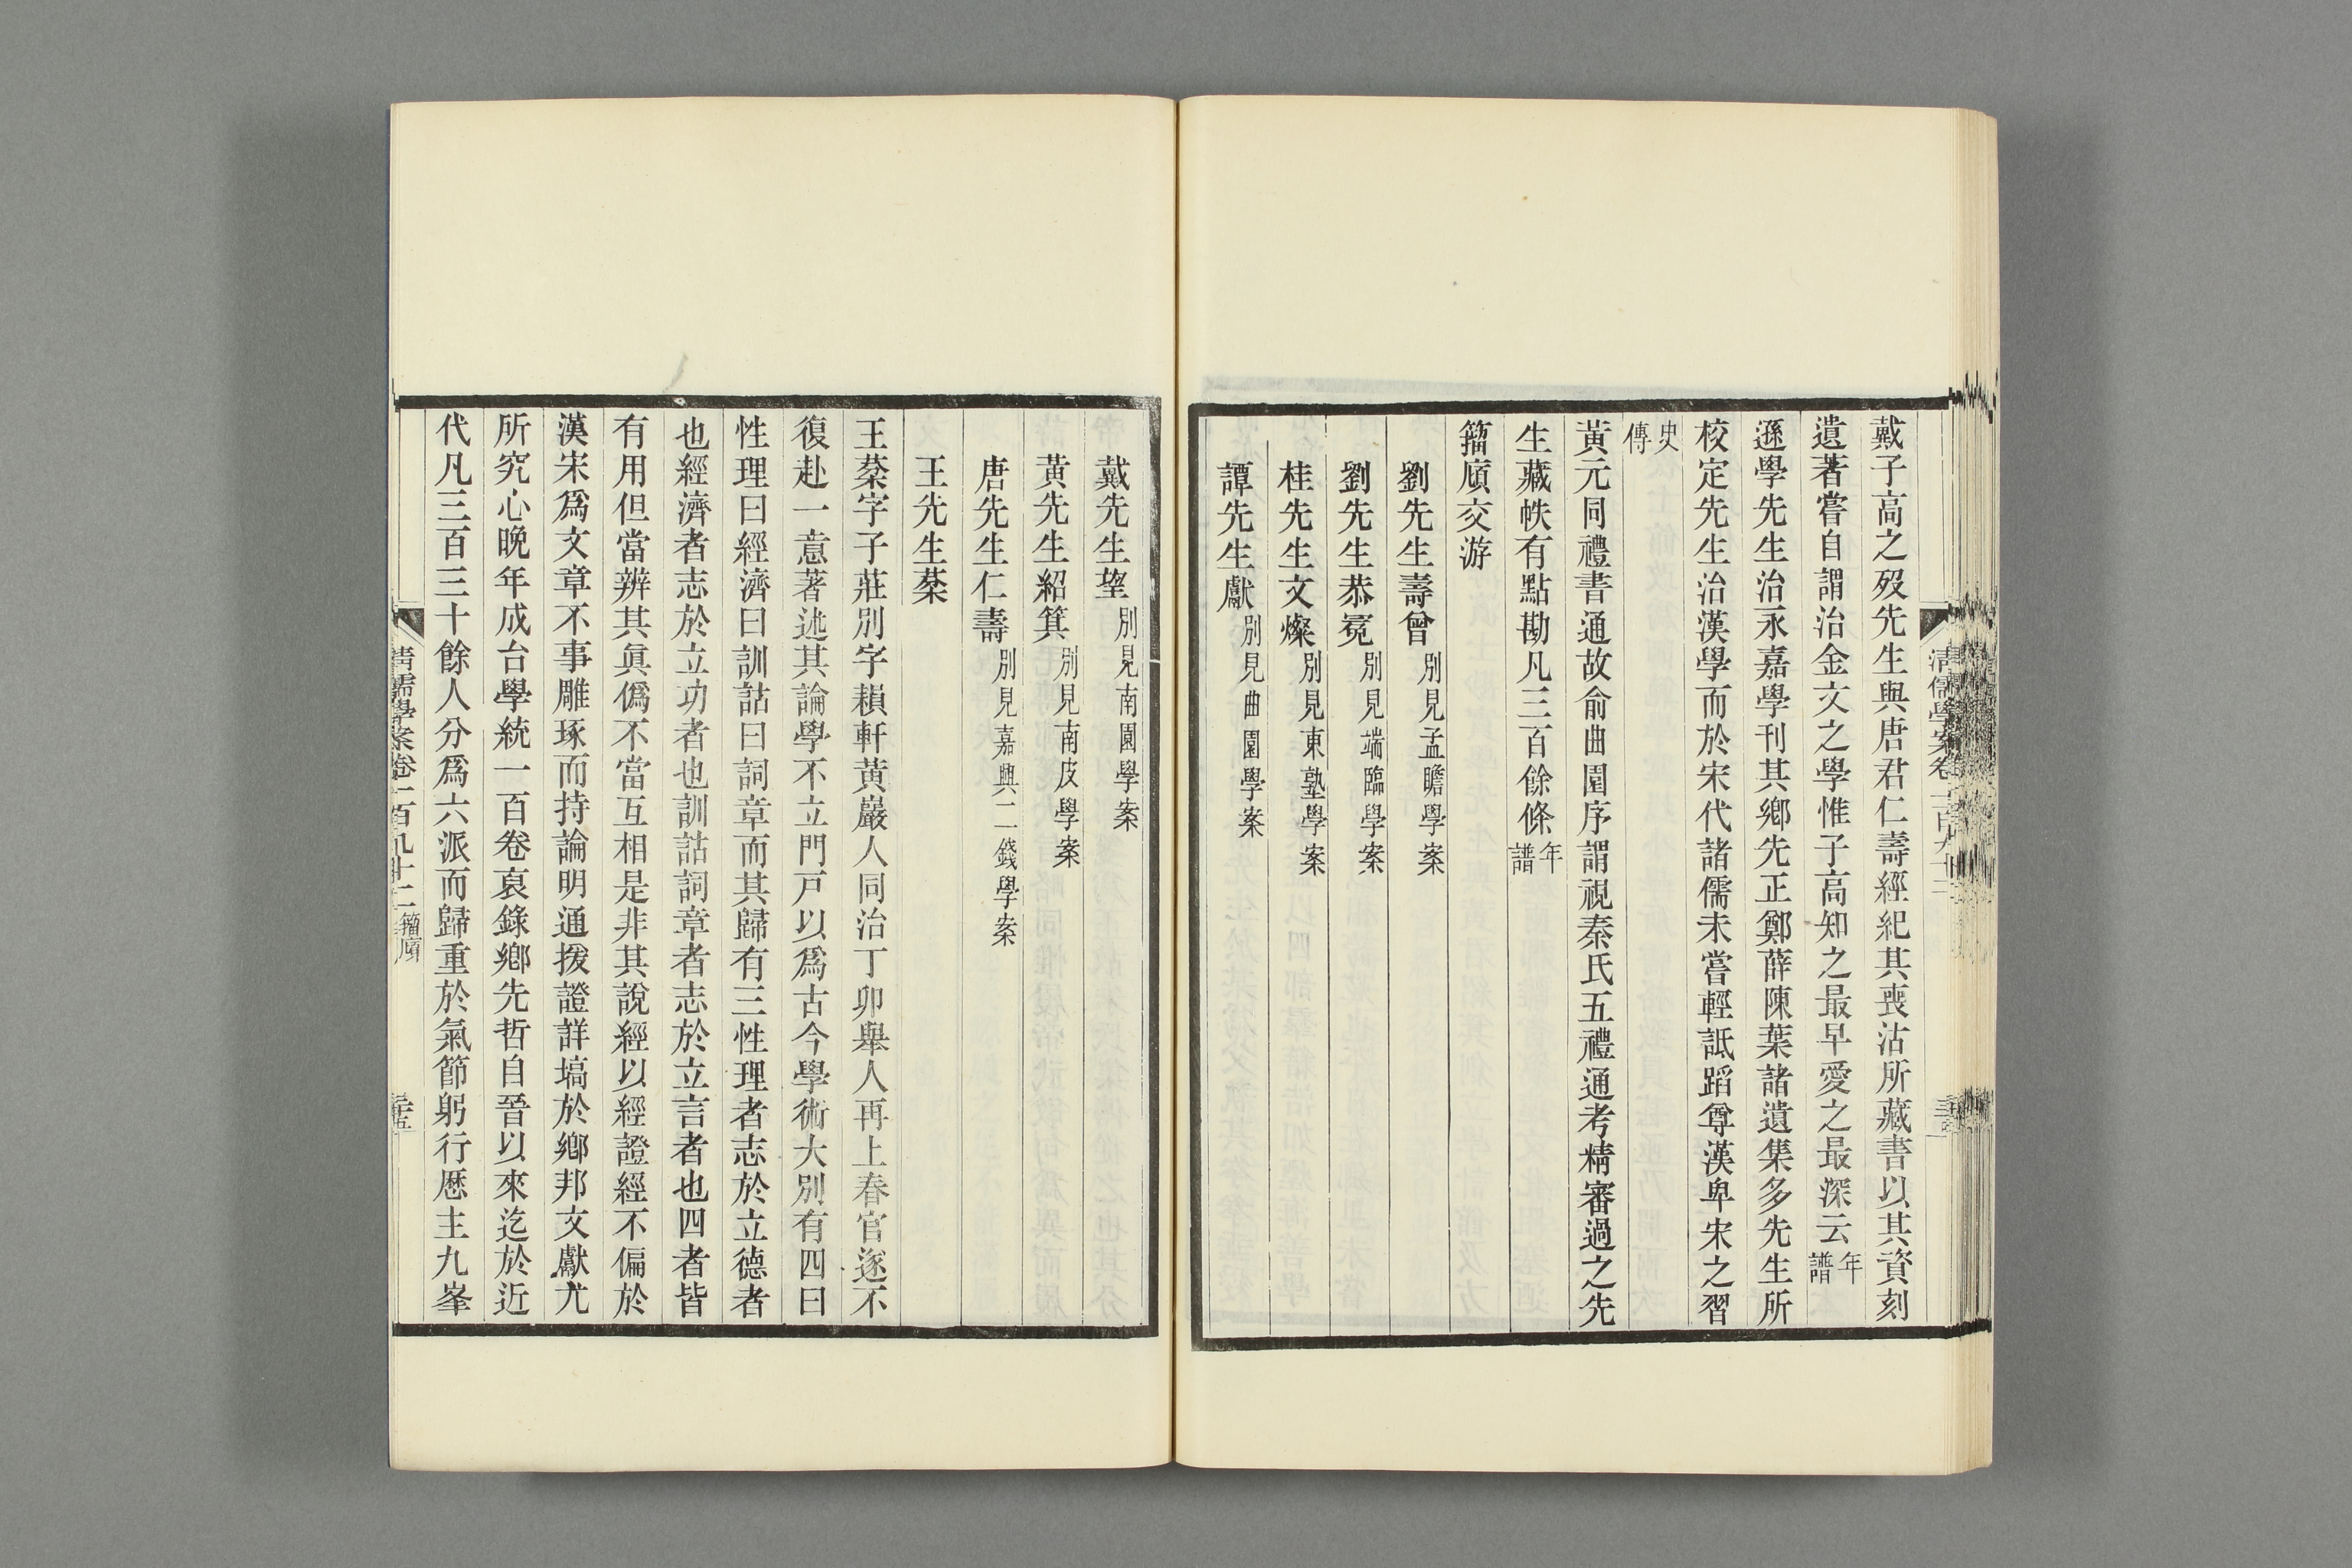 戴子高之歿先生與唐君仁壽經紀其喪沽所藏書以其資刻
遺著嘗自謂治金文之學惟子高知之最早愛之最深云年譜
遜學先生治永嘉學刊其鄉先正鄭薛陳葉諸遺集多先生所
校定先生治漢學而於宋代諸儒未嘗輕詆蹈尊漢卑宋之習
史傳
黃元同禮書通故俞曲園序謂視秦氏五禮通考精審過之先
生藏帙有點勘凡三百餘條年譜
籀廎交游
劉先生壽曾別見孟瞻學案
劉先生恭冕別見端臨學案
桂先生文燦別見東塾學案
譚先生獻別見曲園學案
戴先生望別見南園學案
黃先生紹箕別見南皮學案
唐先生仁壽別見嘉興二錢學案
王先生棻
王棻字子莊別字耨軒黃巖人同治丁卯舉人再上春官遂不
復赴一意著述其論學不立門戶以爲古今學術大別有四曰
性理曰經濟曰訓詁曰詞章而其歸有三性理者志於立德者
也經濟者志於立功者也訓詁詞章者志於立言者也四者皆
有用但當辨其眞僞不當互相是非其說經以經證經不偏於
漢宋爲文章不事雕琢而持論明通援證詳塙於鄉邦文獻尤
所究心晚年成台學統一百卷裒錄鄉先哲自晉以來迄於近
代凡三百三十餘人分爲六派而歸重於氣節躬行歷主九峯
清儒學案卷一百九十二 籀廎